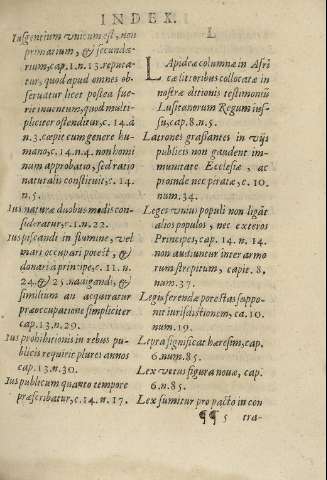 INDEX.
Ius gentium vnicum est, non
primarium, & secunda-
rium, cap. 1. n. 13. reputa-
tur, quod apud omnes ob-
seruatur licet postea fue-
rit inuentum, quod multi-
pliciter ostenditur, c. 14. à
n. 3. cœpit cum genere hu-
mano, c. 14. n. 4. non homi
num approbatio, sed ratio
naturalis constituit, c. 14.
n. 5.
Ius naturæ duobus modis con-
sideratur, c. 1. n. 22.
Ius piscandi in flumine, vel
mari occupari potest, &
donari à principe, c. 11. n.
24. & 25. nauigandi, &
similium an acquiratur
præoccupatione simpliciter
cap. 13. n. 29.
Ius prohibitionis in rebus pu-
blicis requirit plures annos
cap. 13. n. 30.
Ius publicum quanto tempore
præscribatur, c. 14. n. 17.
L
LApideæ columnæ in Afri
cæ litoribus collocatæ in
nostræ ditionis testimoniũ
Lusitanorum Regum ius-
su, cap. 8. n. 5.
Latrones grassantes in vijs
publicis non gaudent im-
munitate Ecclesiæ, ac
proinde nec piratæ, c. 10.
num. 34.
Leges vnius populi non ligãt
alios populos, nec exteros
Principes, cap. 14. n. 14.
non audiuntur inter armo
rum strepitum, capit. 8,
num. 37.
Legis ferendæ potestas suppo-
nit iurisdictionem, ca. 10.
num. 19.
Lepra significat hæresim, cap.
6. num. 85.
Lex vetus figura nouæ, cap.
6. n. 85.
Lex sumitur pro pacto in con
¶¶ 5 tra-